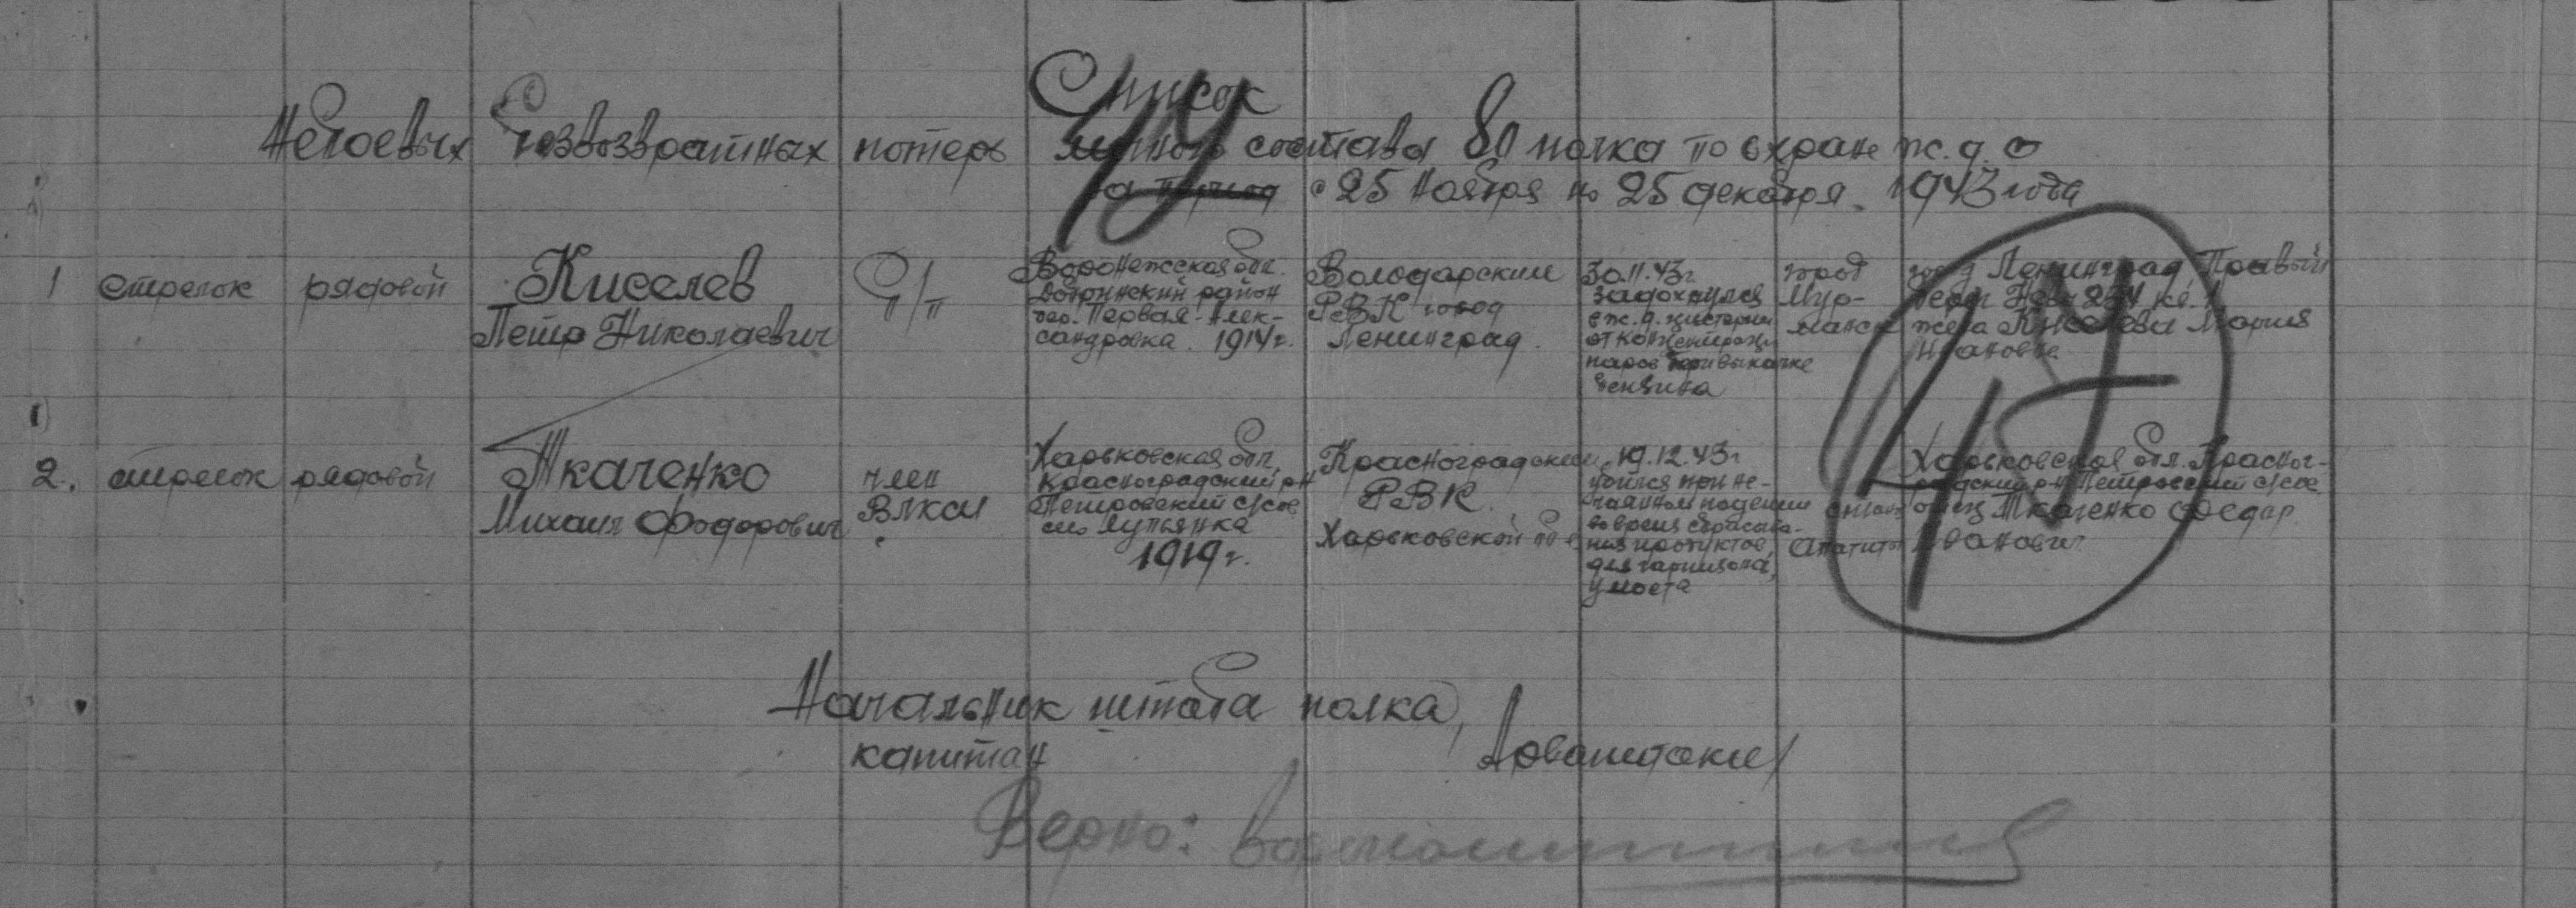 Список
Небоевых безвозвратных потерь личного состава 80 полка по охране ж.д. с
за период с 25 ноября по 25 декабря 1943 года
1 стрелок рядовой Киселев Петр Николаевич б/п
Воронежская обл.
Добринский район
сел. Первая-Алек-
сандровка. 1914 г.
Володарским
РВК город
Ленинград.
30.11.43 г.
задохнулся
в ж.д. цистерне
от
паров при выкачке
бензина
город
Мур-
манск
город Ленинград Правый
берег Невы
жена Киселева Мария
Ивановна
2. стрелок рядовой Ткаченко Михаил Фодорович
член
ВЛКСМ
Харьковская обл.
Красноградский р-н
Петровский с/сов
1919 г.
Красноградским
РВК.
Харьковской обл
19.12.43 г
убился при не-
чаянном падении
во время сбрасыва-
ния продуктов
для гарнизона,
у моста
станц
Апатиты
Харьковская обл. Красног-
радский р-н Петровский с/сов
отец Ткаченко Федор
Иванович
Начальник штаба полка,
капитан
Верно: